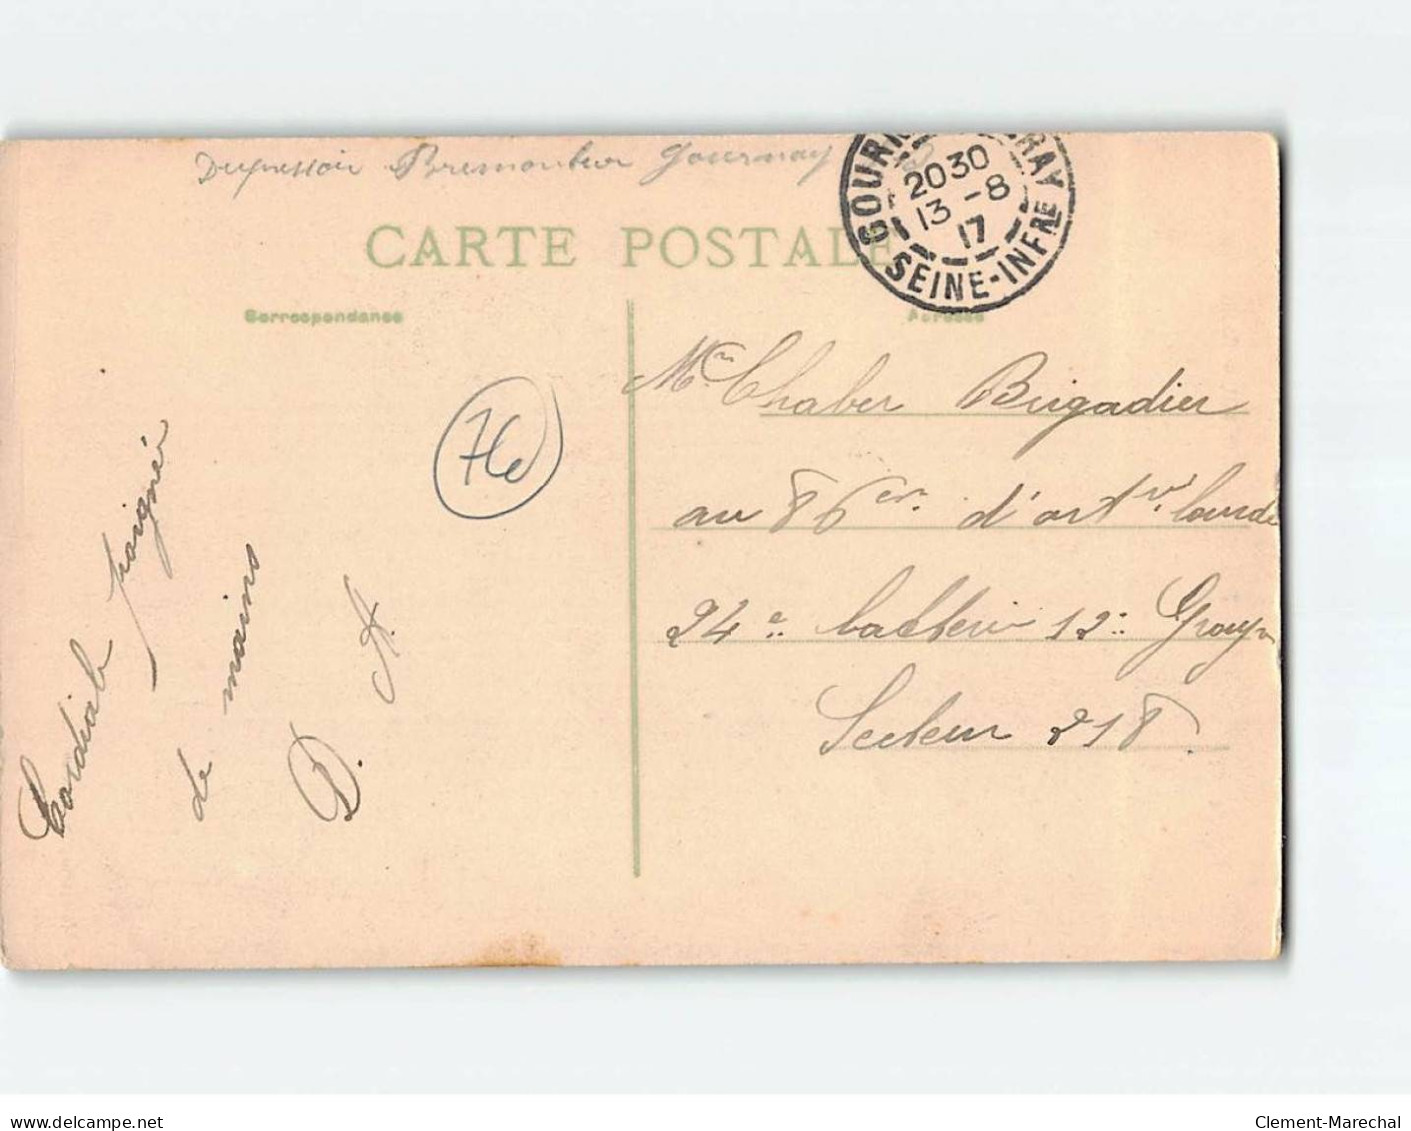 Dupressoir Bremontier Gournay
CARTE POSTALE
Correspondance
Adresse
GOURN RAY
2030
13 - 8
17
SEINE-INFRE
76
Mr Chaber Brigadier
au 86 d'art lourde
24e batterie 12e Group
Secteur 218.
Cordiale poignée
de mains
D. A.
www.delcampe.net
Clement-Marechal